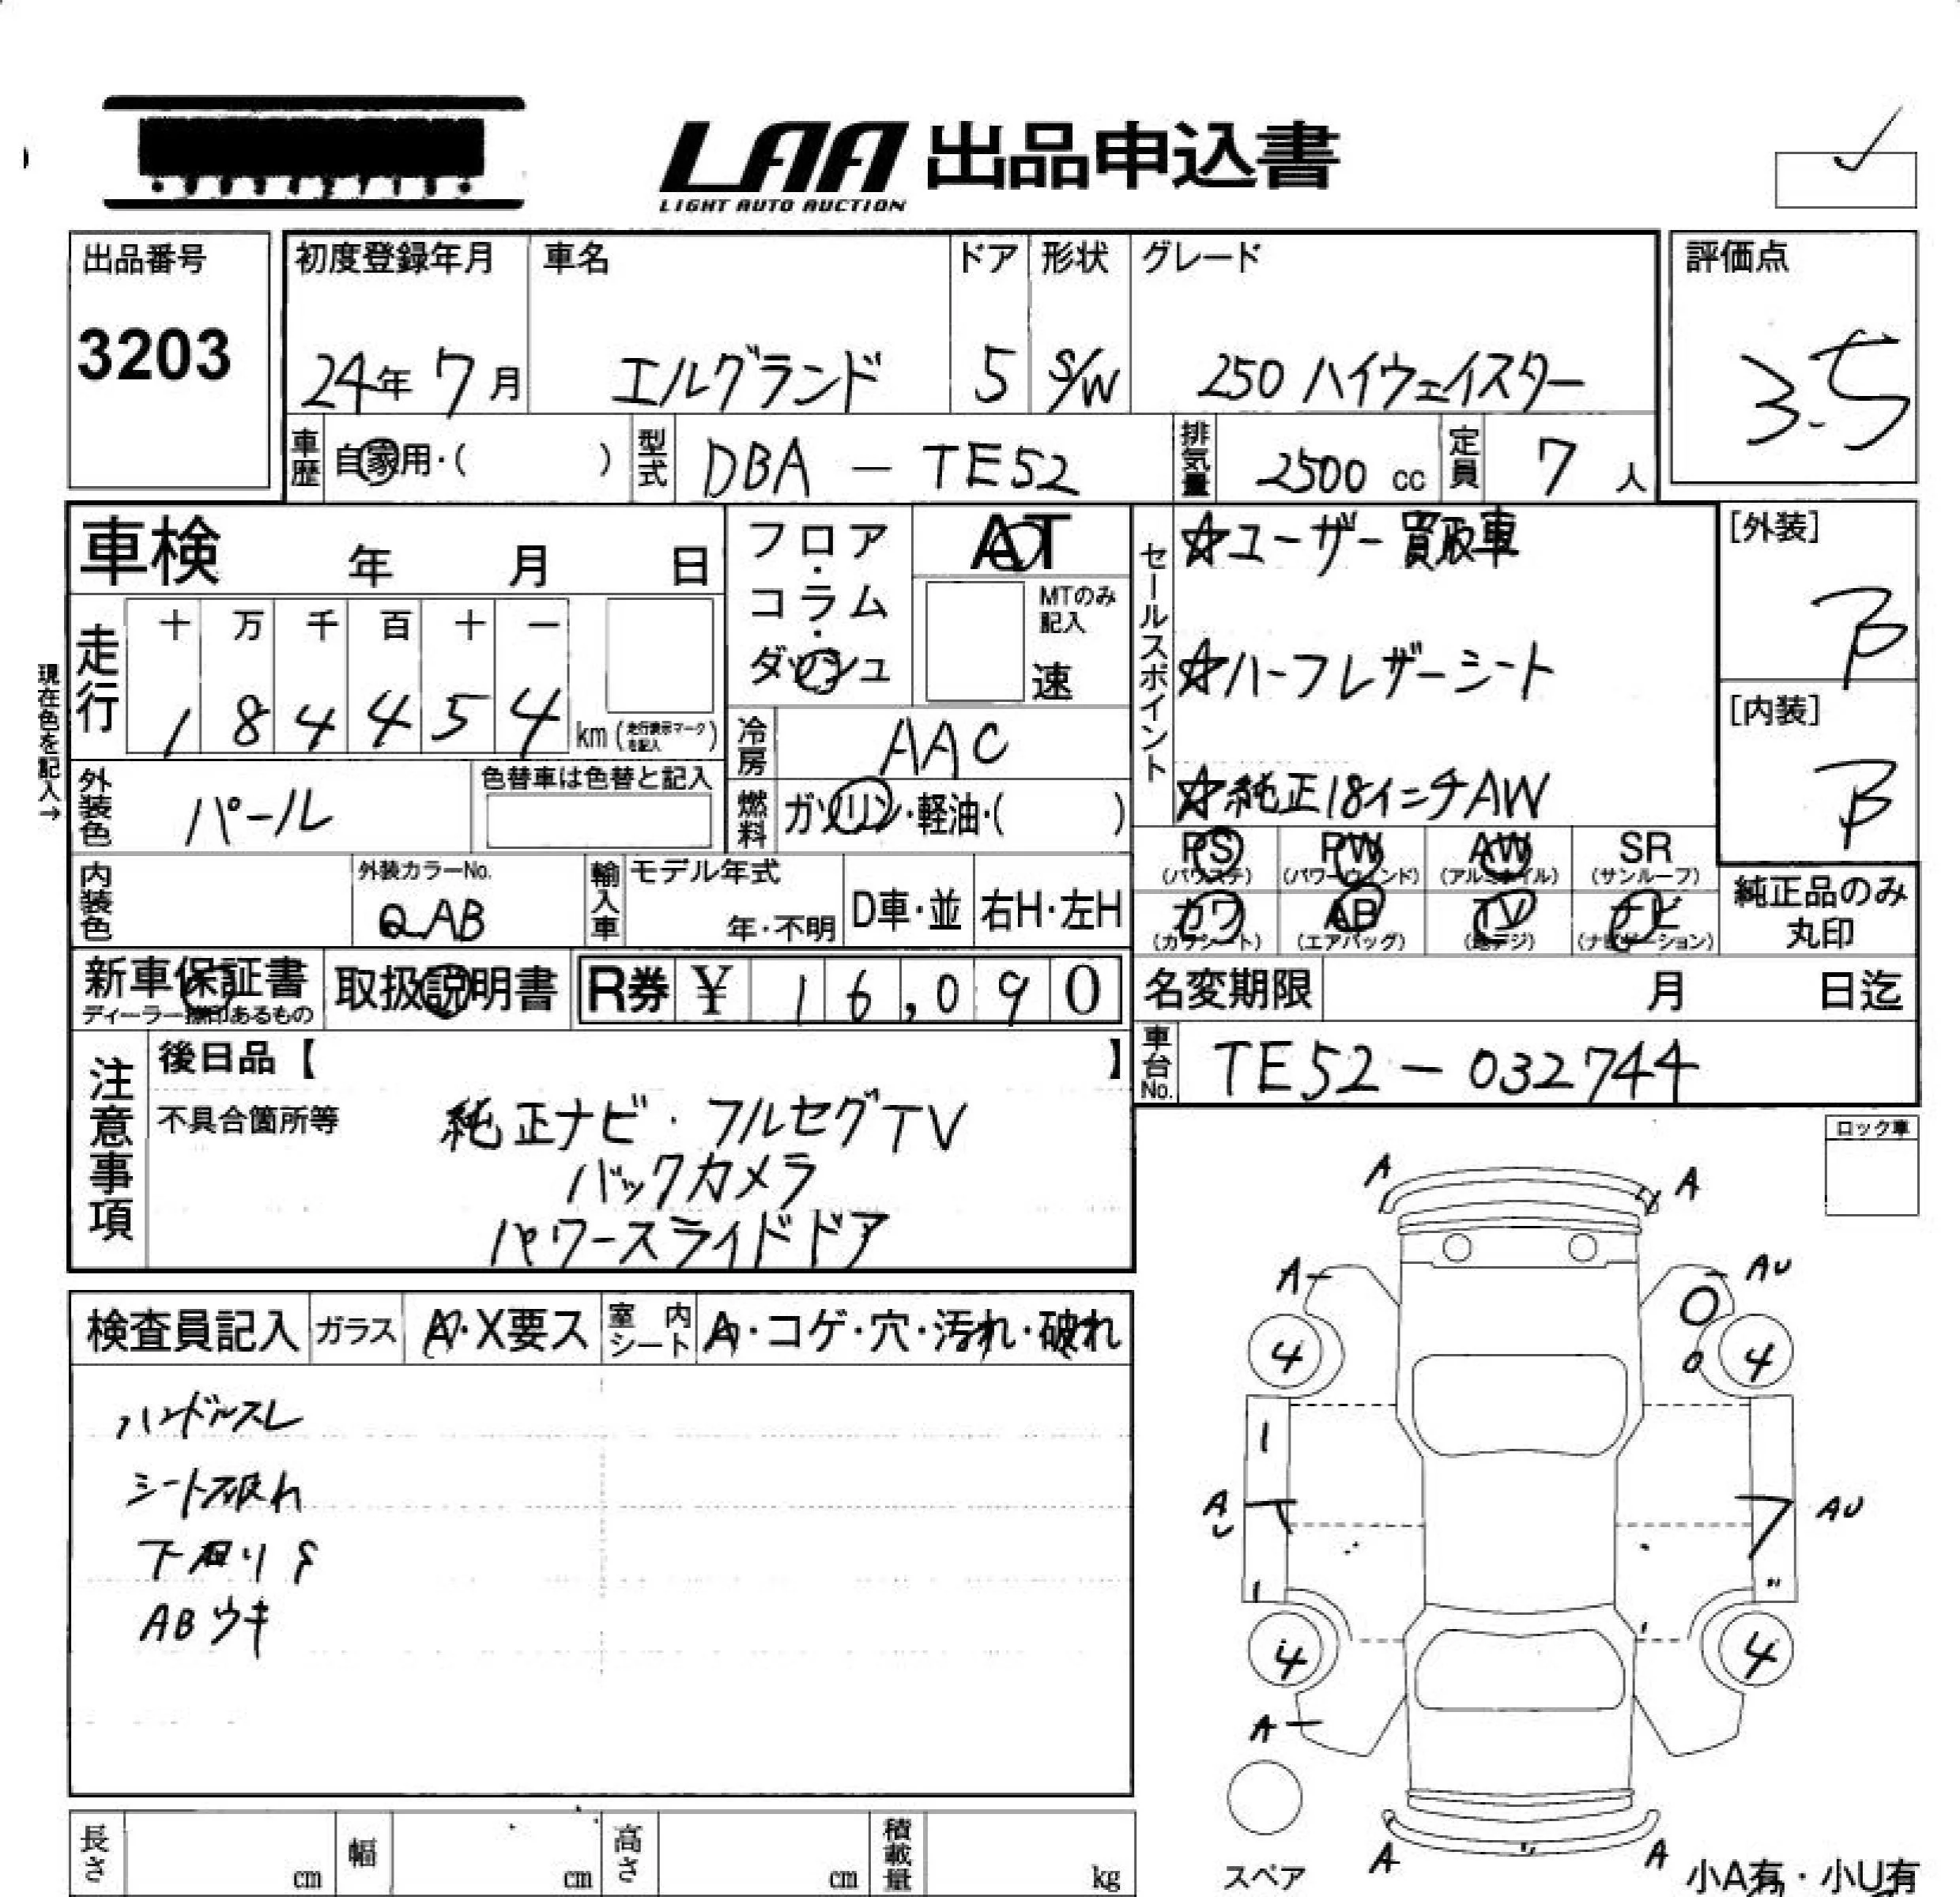 LAA 出品申込書
LIGHT AUTO AUCTION
出品番号 3203
初度登録年月 24年 7月
車名 エルグランド
ドア 5
形状 S/W
グレード 250 ハイウェイスター
評価点 3.5
車歴 自家用・( )
型式 DBA - TE52
排気量 2500 cc
定員 7 人
車検 年 月 日
フロア・コラム・ダッシュ
AT
MTのみ記入
速
セールスポイント
☆ユーザー買取車
☆ハーフレザーシート
☆純正18インチAW
[外装] B
[内装] B
現在色を記入→
走行 十 万 千 百 十 一
1 8 4 4 5 4 km (走行表示マークを記入)
冷房 AAC
燃料 ガソリン・軽油・( )
外装色 パール
色替車は色替と記入
内装色
外装カラーNo. QAB
輸入車 モデル年式 年・不明
D車・並 右H・左H
PS (パワステ) PW (パワーウィンド) AW (アルミホイル) SR (サンルーフ)
カワ (カワシート) AB (エアバッグ) TV (地デジ) ナビ (ナビゲーション)
純正品のみ丸印
新車保証書
ディーラー捺印あるもの
取扱説明書
R券 ¥ 16,090
名変期限 月 日迄
車台No. TE52-032744
注意事項
後日品【 】
不具合箇所等
純正ナビ・フルセグTV
バックカメラ
パワースライドドア
ロック車
検査員記入 ガラス A・X要ス 室内シート A・コゲ・穴・汚れ・破れ
ハンドルスレ
シート破れ
下回りS
ABウキ
A A
A AU
4 4
AU AU
4 4
A
A A
スペア
小A有・小U有
長さ cm 幅 cm 高さ cm 積載量 kg